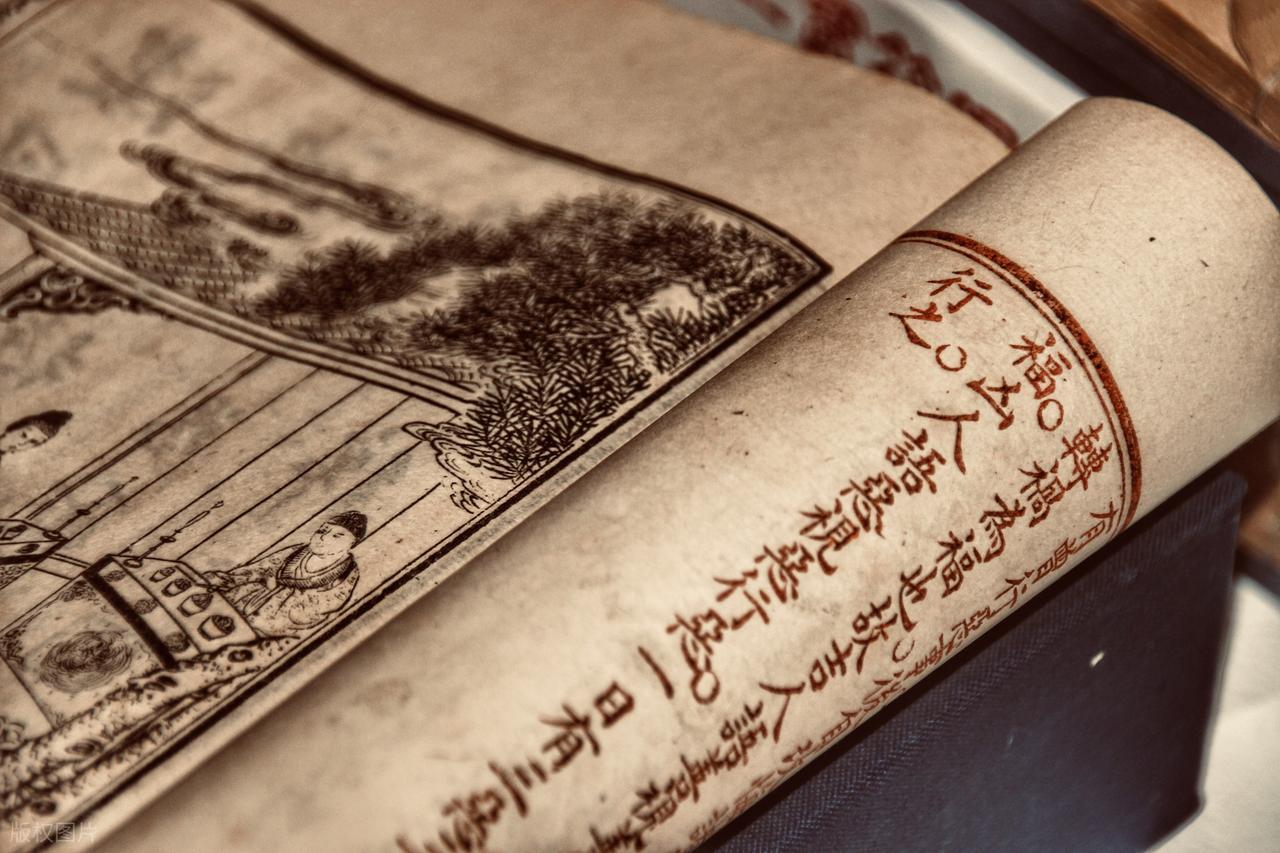 有曾行惡事後自改悔諸
轉禍為福也。故吉人語善視善
福。凶人語惡視惡行惡。一日有三惡
行之。
版权图片